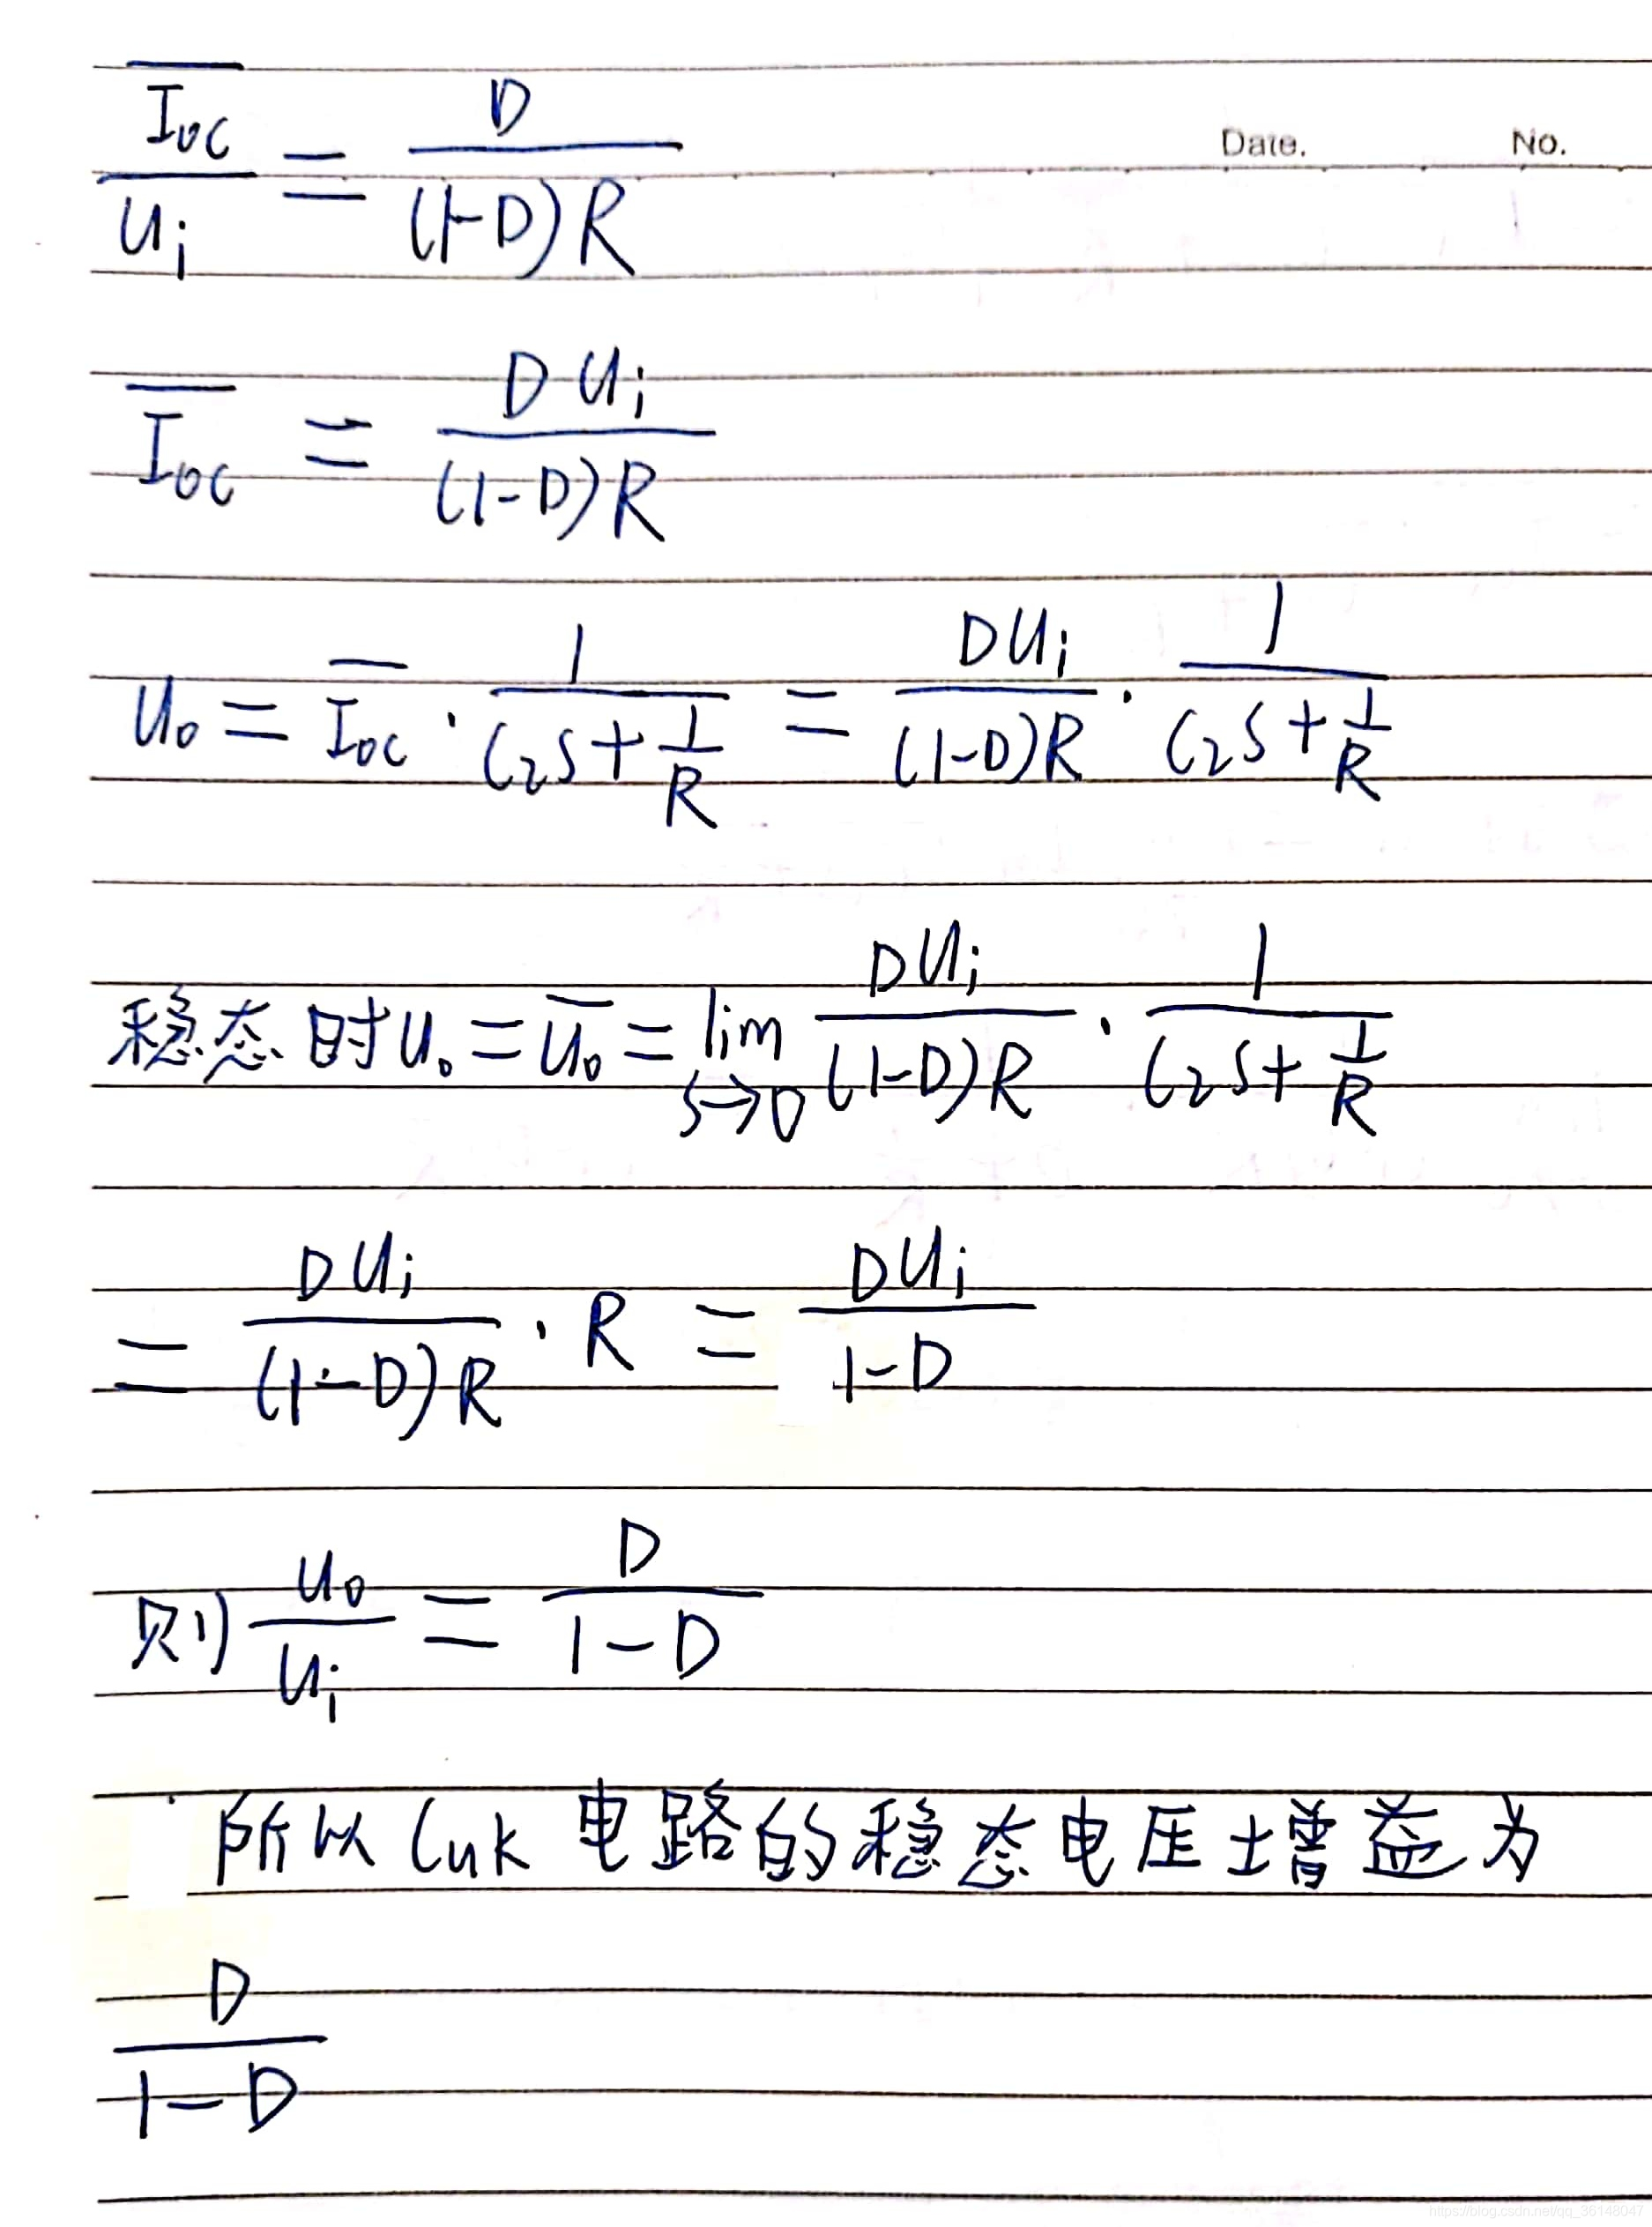 Date. No.
\frac{\overline{I_{oc}}}{U_i} = \frac{D}{(1-D)R}
\overline{I_{oc}} = \frac{DU_i}{(1-D)R}
U_o = \overline{I_{oc}} \cdot \frac{1}{C_2S+\frac{1}{R}} = \frac{DU_i}{(1-D)R} \cdot \frac{1}{C_2S+\frac{1}{R}}
稳态时U_o = \overline{U_o} = \lim_{S→0} \frac{DU_i}{(1-D)R} \cdot \frac{1}{C_2S+\frac{1}{R}}
= \frac{DU_i}{(1-D)R} \cdot R = \frac{DU_i}{1-D}
则 \frac{U_o}{U_i} = \frac{D}{1-D}
所以Cuk电路的稳态电压增益为
\frac{D}{1-D}
https://blog.csdn.net/qq_36148047